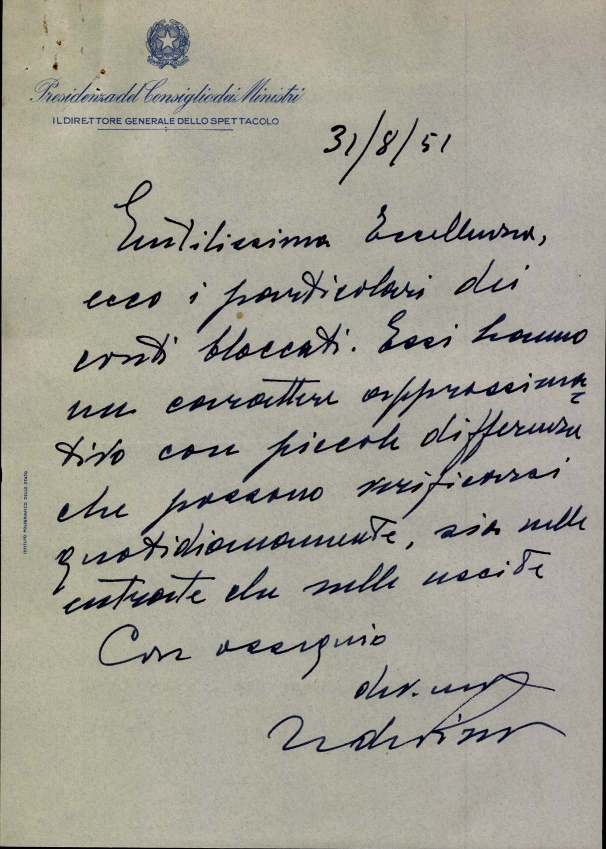 Presidenza del Consiglio dei Ministri
IL DIRETTORE GENERALE DELLO SPETTACOLO
31/8/51
Gentilissima Eccellenza,
ecco i particolari dei
conti bloccati. Essi hanno
un carattere approssima=
tivo con piccole differenze
che possono verificarsi
quotidianamente, sia nelle
entrate che nelle uscite
Con ossequio
dev.mo
ISTITUTO POLIGRAFICO DELLO STATO